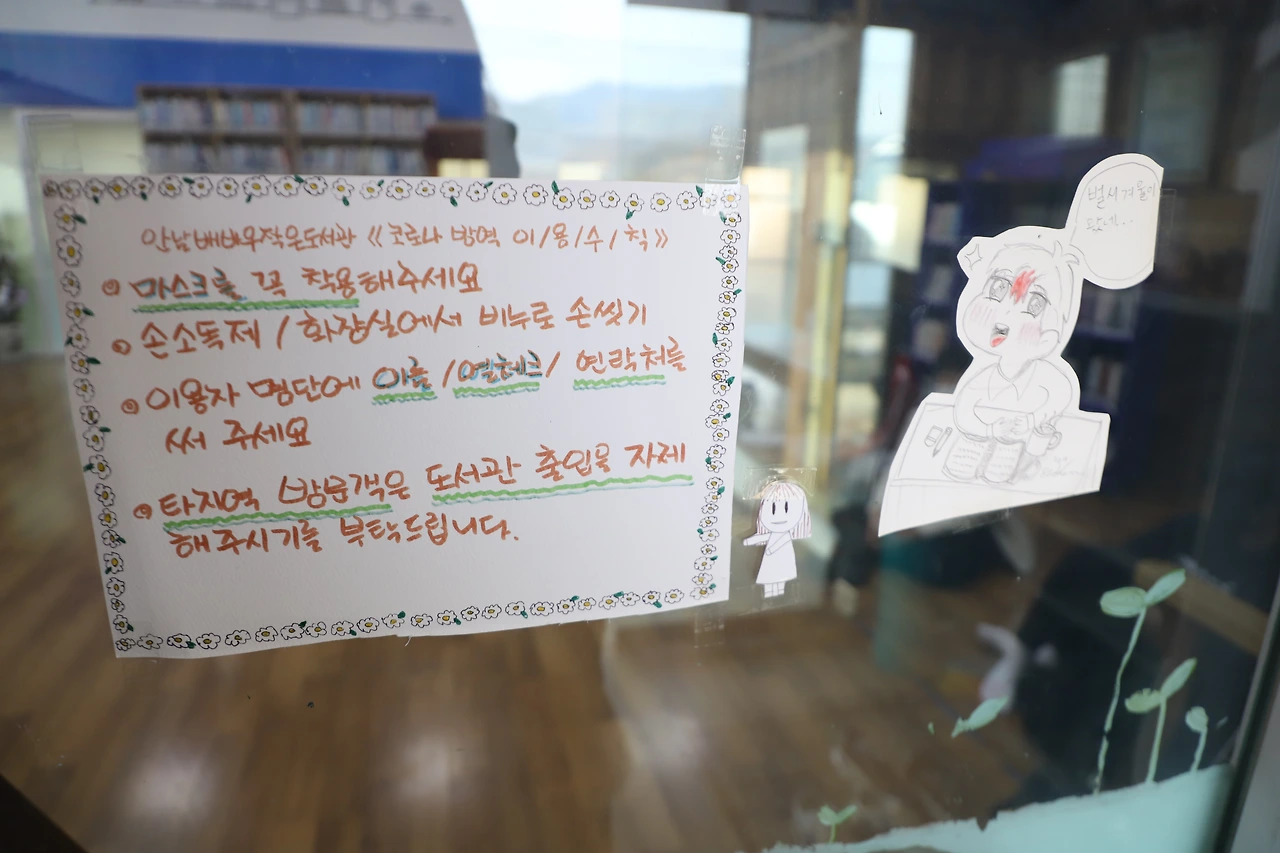 안남배바우작은도서관 《코로나 방역 이/용/수/칙》
마스크를 꼭 착용해주세요
손소독제 / 화장실에서 비누로 손씻기
이용자 명단에 이름 /열체크/ 연락처를
써 주세요
타지역 방문객은 도서관 출입을 자제
해주시기를 부탁드립니다.
벌써